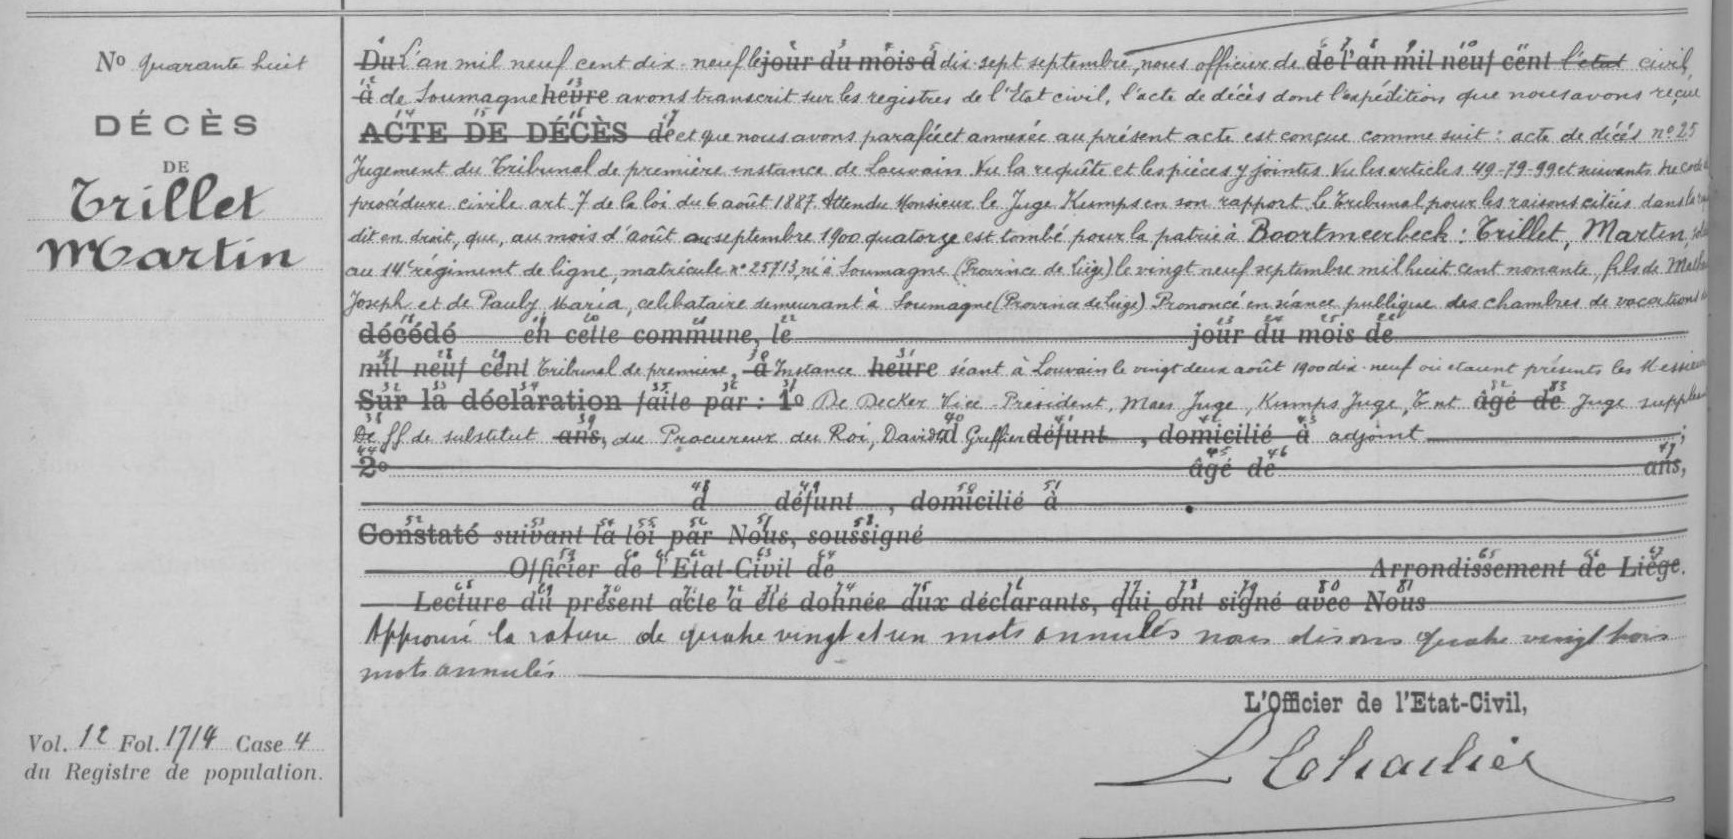 Nº quarante huit
DÉCÈS
DE
Trillet
Martin
Vol. 12 Fol. 1714 Case 4
du Registre de population.
Du L'an mil neuf cent dix-neuf le jour du mois d dix-sept septembre, nous officier de de l'an mil neuf cent l'état civil,
à de Soumagne heure avons transcrit sur les registres de l'Etat civil, l'acte de décès dont l'expédition que nous avons reçue
ACTE DE DÉCÈS de et que nous avons parafée et annexée au présent acte est conçue comme suit : acte de décès nº 25
Jugement du Tribunal de première instance de Louvain Vu la requête et les pièces y jointes Vu les articles 49-79-99 et suivants du code
procédure civile art 7 de la loi du 6 août 1887. Attendu Monsieur le Juge Kumps en son rapport le Tribunal pour les raisons citées dans la
dit en droit, que, au mois d'août ou septembre 1900 quatorze est tombé pour la patrie à Boortmeerbeek : Trillet, Martin,
au 14e régiment de ligne, matricule nº 25713, né à Soumagne (Province de Liège) le vingt neuf septembre mil huit cent nonante, fils de
Joseph et de Pauly, Maria, célibataire demeurant à Soumagne (Province de Liège) Prononcé en séance publique des chambres de vacations
décédé en cette commune, le jour du mois de
mil neuf cent Tribunal de première, à Instance heure séant à Louvain le vingt deux août 1900 dix-neuf où étaient présents les Messieurs
Sur la déclaration faite par : 1º De Decker Vice-Président, Maes Juge, Kumps Juge, âgé de Juge
De ff de substitut ans, du Procureur du Roi, Davids d Greffier défunt , domicilié à adjoint ;
2º âgé de ans,
d défunt , domicilié à
Constaté suivant la loi par Nous, soussigné
Officier de l'Etat-Civil de Arrondissement de Liége.
Lecture du présent acte a été donnée aux déclarants, qui ont signé avec Nous
Approuvé la rature de quatre vingt et un mots annulés nous disons quatre vingt trois
mots annulés
L'Officier de l'Etat-Civil,